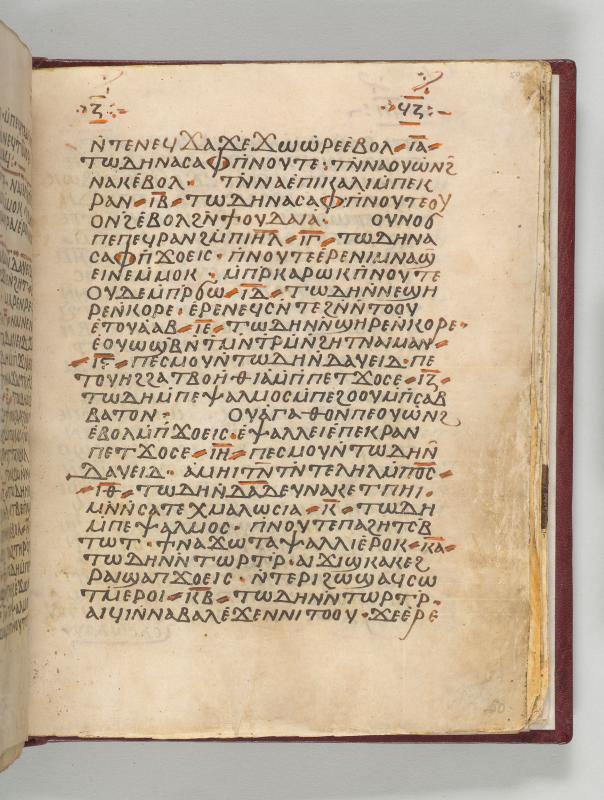 ⲍ̄ ϥⲍ̄
ⲛ̄ⲧⲉⲛⲉϥϫⲁϫⲉϫⲱⲱⲣⲉⲉⲃⲟⲗ ⲓ̄ⲁ̄
ⲧⲱⲇⲏⲛⲁⲥⲁⲫ ⲡ̄ⲛⲟⲩⲧⲉ· ⲧⲛ̄ⲛⲁⲟⲩⲱⲛϩ̄
ⲛⲁⲕⲉⲃⲟⲗ· ⲧⲛ̄ⲛⲁⲉⲡⲓⲕⲁⲗⲓⲙ̄ⲡⲉⲕ
ⲣⲁⲛ ⲓ̄ⲃ̄ ⲧⲱⲇⲏⲛⲁⲥⲁⲫ· ⲡ̄ⲛⲟⲩⲧⲉⲟⲩ
ⲟⲛϩ̄ⲉⲃⲟⲗϩⲛ̄ϯⲟⲩⲇⲁⲓⲁ· ⲟⲩⲛⲟϭ
ⲡⲉⲡⲉϥⲣⲁⲛϩⲙ̄ⲡⲓⲏ̄ⲗ̄ ⲓ̄ⲅ̄ ⲧⲱⲇⲏⲛⲁ
ⲥⲁⲫ ⲡ̄ϫⲟⲉⲓⲥ· ⲡ̄ⲛⲟⲩⲧⲉⲉⲣⲉⲛⲓⲙⲛⲁϣ
ⲉⲓⲛⲉⲙⲙⲟⲕ· ⲙ̄ⲡⲣ̄ⲕⲁⲣⲱⲕⲡ̄ⲛⲟⲩⲧⲉ
ⲟⲩⲇⲉⲙ̄ⲡⲣ̄ϭⲱ ⲓ̄ⲇ̄ ⲧⲱⲇⲏⲛ̄ⲛⲉϣⲏ
ⲣⲉⲛ̄ⲕⲟⲣⲉ· ⲉⲣⲉⲛⲉϥⲥⲛ̄ⲧⲉϩⲛ̄ⲛ̄ⲧⲟⲟⲩ
ⲉⲧⲟⲩⲁⲁⲃ ⲓ̄ⲉ̄ ⲧⲱⲇⲏⲛ̄ⲛ̄ϣⲏⲣⲉⲛ̄ⲕⲟⲣⲉ·
ⲉⲟⲩⲱϣⲃ̄ⲛ̄ⲧⲙ̄ⲛ̄ⲧⲣⲙ̄ⲛ̄ϩⲏⲧⲛⲁⲓⲙⲁⲛ
ⲓ̄ⲋ̄ ⲡⲉⲥⲙⲟⲩⲛ̄ⲧⲱⲇⲏⲛ̄ⲇⲁⲩⲉⲓⲇ· ⲡⲉ
ⲧⲟⲩⲏϩϩⲁⲧⲃⲟⲏⲑⲓⲁⲙ̄ⲡⲉⲧϫⲟⲥⲉ ⲓ̄ⲍ̄
ⲧⲱⲇⲏⲙ̄ⲡⲉⲯⲁⲗⲙⲟⲥⲙ̄ⲡⲉϩⲟⲟⲩⲙ̄ⲡⲥⲁⲃ
ⲃⲁⲧⲟⲛ· ⲟⲩⲁⲅⲁⲑⲟⲛⲡⲉⲟⲩⲱⲛϩ̄
ⲉⲃⲟⲗⲙ̄ⲡ̄ϫⲟⲉⲓⲥ· ⲉⲯⲁⲗⲗⲉⲓⲉⲡⲉⲕⲣⲁⲛ
ⲡⲉⲧϫⲟⲥⲉ ⲓ̄ⲏ̄ ⲡⲉⲥⲙⲟⲩⲛ̄ⲧⲱⲇⲏⲛ̄
ⲇⲁⲩⲉⲓⲇ· ⲁⲙⲏⲓⲧⲛ̄ⲧⲛ̄ⲧⲉⲗⲏⲗⲙ̄ⲡⲟ̄ⲥ̄
ⲓ̄ⲑ̄ ⲧⲱⲇⲏⲛ̄ⲇⲁ̄ⲇ̄ⲉⲩⲛⲁⲕⲉⲧⲡⲏⲓ·
ⲙⲛ̄ⲛ̄ⲥⲁⲧⲉⲭⲙⲁⲗⲱⲥⲓⲁ ⲕ̄ ⲧⲱⲇⲏ
ⲙ̄ⲡⲉⲯⲁⲗⲙⲟⲥ· ⲡ̄ⲛⲟⲩⲧⲉⲡⲁϩⲏⲧⲥⲃ̄
ⲧⲱⲧ· ϯⲛⲁϫⲱⲧⲁⲯⲁⲗⲗⲓⲉⲣⲟⲕ ⲕ̄ⲁ̄
ⲧⲱⲇⲏⲛ̄ⲛ̄ⲧⲱⲣⲧⲣ̄· ⲁⲓϫⲓϣⲕⲁⲕⲉϩ
ⲣⲁⲓϣⲁⲡϫⲟⲉⲓⲥ· ⲛ̄ⲧⲉⲣⲓϩⲱϣⲁϥⲥⲱ
ⲧⲙ̄ⲉⲣⲟⲓ ⲕ̄ⲃ̄ ⲧⲱⲇⲏⲛ̄ⲛ̄ⲧⲱⲣⲧⲣ̄·
ⲁⲓϥⲓⲛ̄ⲛⲁⲃⲁⲗⲉϫⲉⲛⲛⲓⲧⲟⲟⲩ·ϫⲉⲉⲣⲉ
50